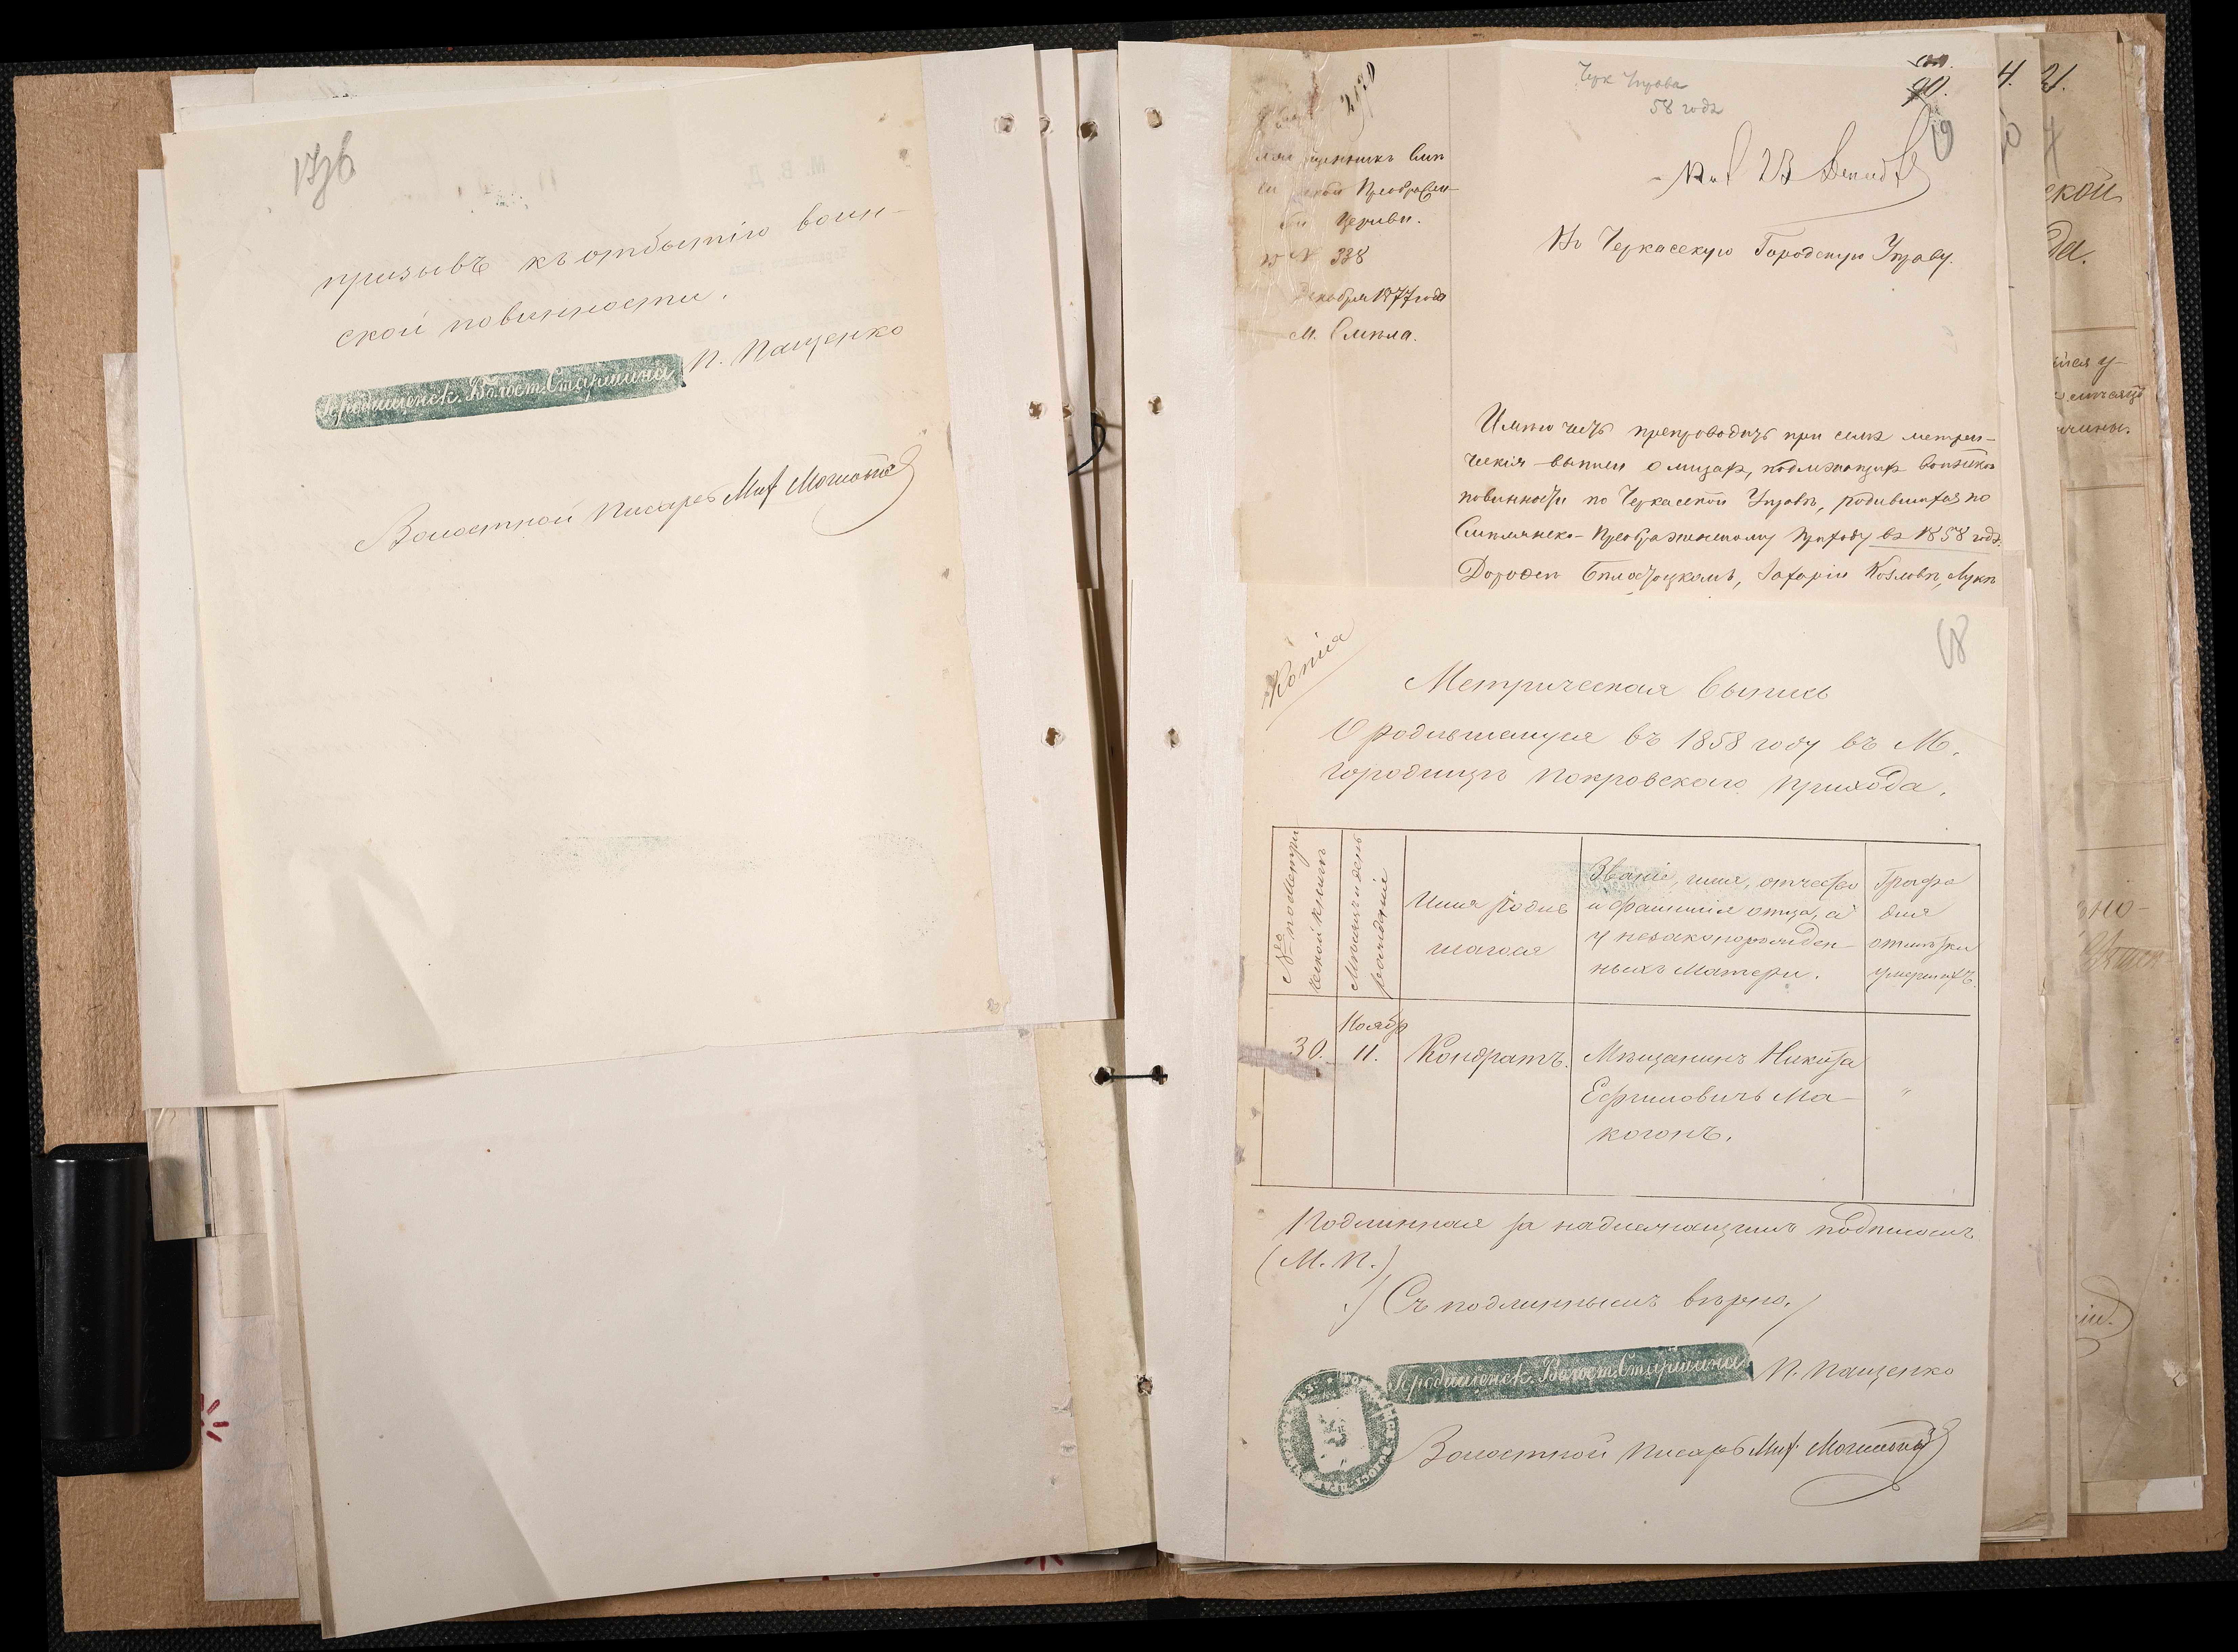 призывъ къ отбытію воин-
ской повинности.
Городищенск. Волост. Старшина П. Пащенко
Волостной Писарь Мих
2430
Черк Управа
58 года
90.
19
Преображен-
Церкви.
№ 338
Декабря 1877 года
М. Смѣла.
Въ Черкасскую Городскую Управу.
Имѣю честь препроводить при семъ метри-
ческія выписи о лицах, подлежащих воинской
повинности по Черкасской Управѣ, родившихся по
Смѣлянско-Преображенскому приходу въ 1858 годѣ.
Дорофеѣ Бѣлостоцкомъ, Захаріи Козловѣ, Лукѣ
Копія
68
Метрическая Выпись
О родившемуся въ 1858 году въ М.
Городищѣ Покровскаго прихода.
№ по метри
ческой книгѣ
Мѣсяцъ и день
рожденія
Имя родив
шагося
Званіе, имя, отчество
и фамилія отца, а
у незаконорожден-
ныхъ матери.
Графа
для
отмѣтки
умершихъ.
30.
Ноябр
11.
Кондратъ.
Мѣщанинъ Никита
Ефимовичъ Ма-
когонъ.
"
Подлинная за надлежащимъ подписомъ
(М. П.)
Съ подлиннымъ вѣрно.
Городищенск. Волост. Старшина П. Пащенко
Волостной Писарь Мих.
4.
21.
ской
да.